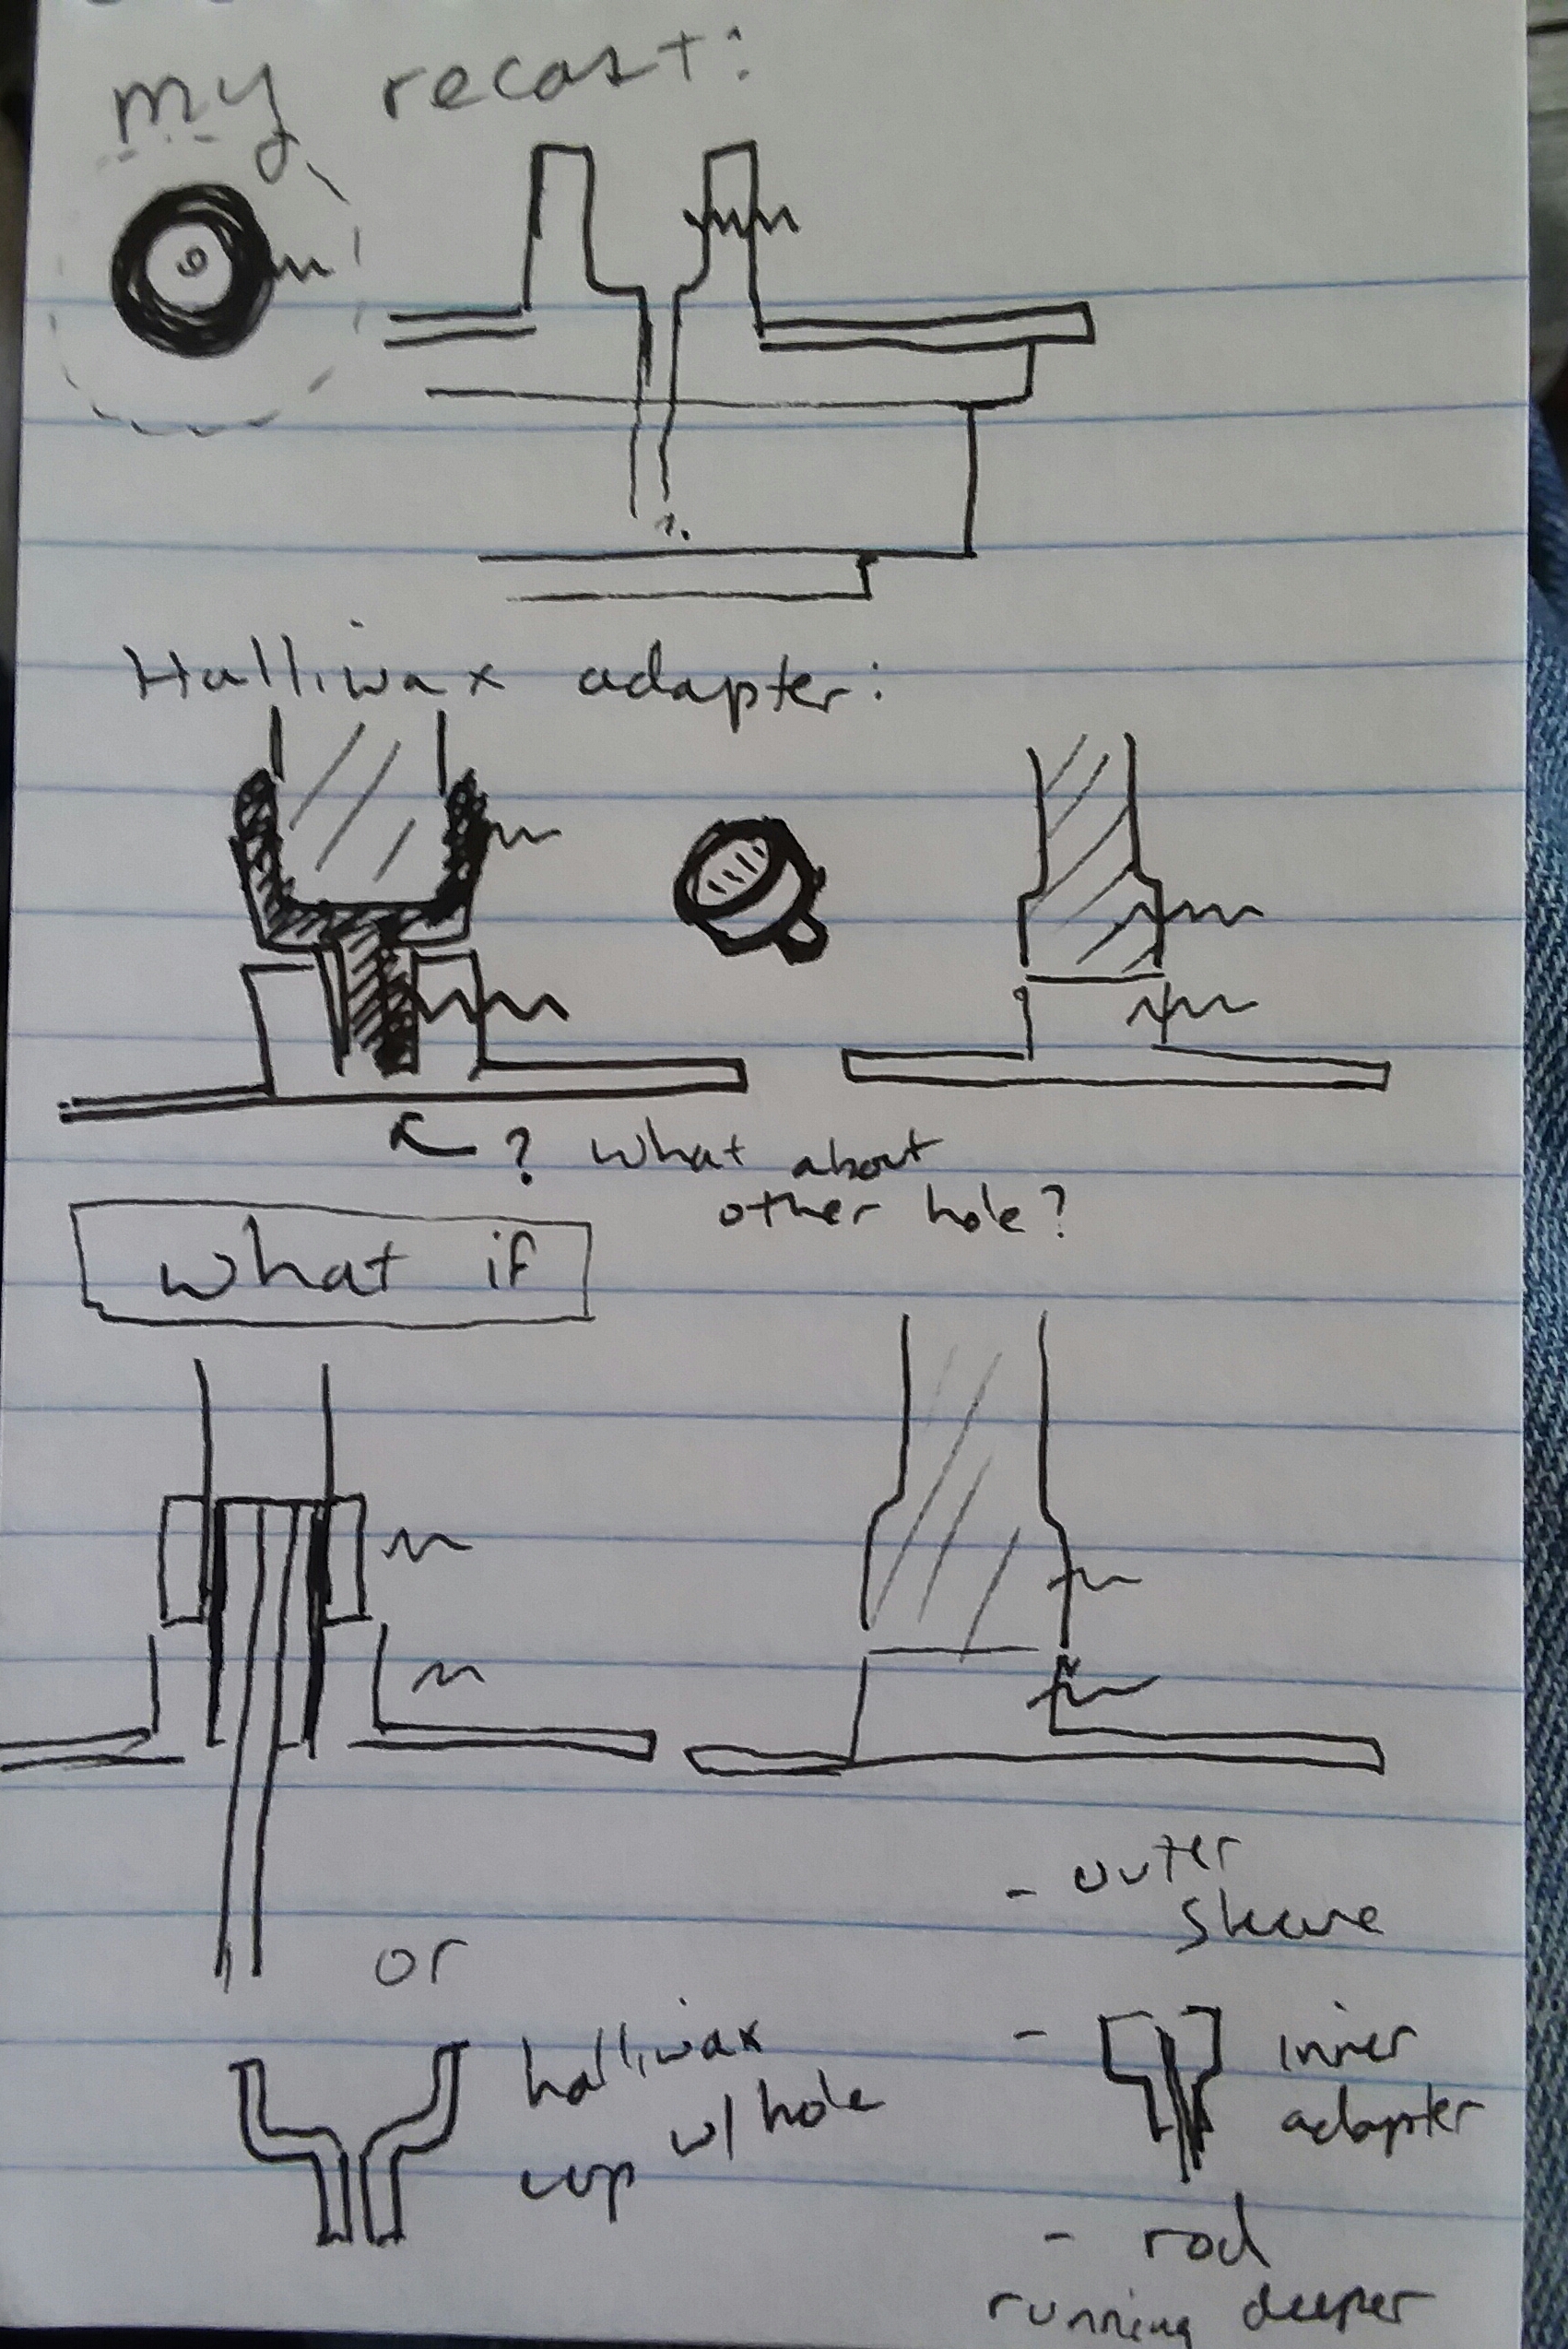 my recast:
Halliwax adapter:
? what about
other hole?
what if
or
halliwax
cup w/ hole
- outer
sleeve
- inner
adapter
- rod
running deeper